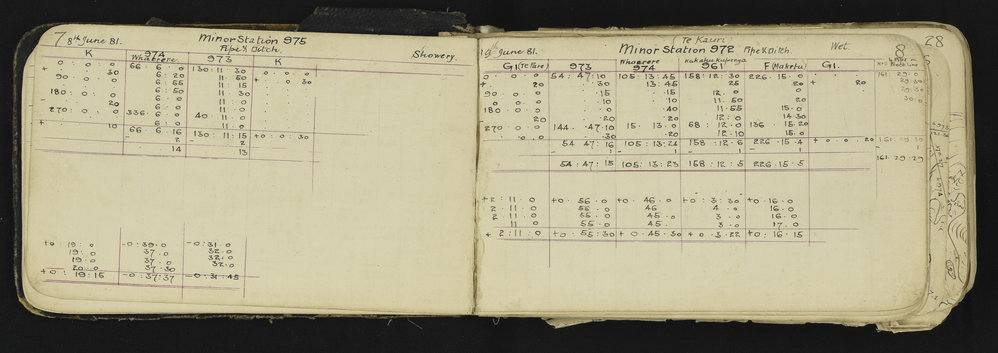 7 8th June 81. Minor Station 975
Pipe & Ditch. Showery.
K 974 973 K
Whaerere
0 . 0 . 0 66 . 6 . 0 130 : 11 . 30 0 . 0 . 0
+ 30 6 : 20 11 : 50 + . 0 . 30
90 . 0 . 0 6 : 55 11 : 15
6 : 50 11 : 30
180 . 0 . 0 6 : 0 11 : 0
- 20 6 : 0 11 : 0
270 : 0 . 0 336 . 6 : 0 40 . 11 . 0
+ 10 6 : 0 11 : 0
66 6 . 16 130 : 11 : 15 +0 : 0 : 30
- 2 - 2
14 13
+0 : 19 : 0 -0 : 39 . 0 -0 : 31 . 0
19 : 0 37 . 0 32 . 0
19 : 0 37 . 0 32 . 0
20 : 0 37 . 30 32 . 0
+0 : 19 : 15 -0 : 37 : 37 -0 : 31 . 45
(Te Kauri)
9th June 81. Minor Station 972 Pipe & Ditch. Wet. 8
G1 (Te Pare) 973 974 961 F (Maketu) G1.
Whaerere
0 . 0 . 0 54 : 47 : 10 105 : 13 : 45 158 : 12 . 30 226 . 15 . 0
+ 20 . 30 13 : 45 25 20 + 20
90 . 0 . 0 . 15 . 15 12 . 0 0
0 . 10 . 10 11 . 50 20
180 . 0 . 0 . 40 . 0 11 . 55 15 . 0
20 . 20 . 20 12 : 0 14 . 30
270 : 0 : 0 144 . 47 : 10 15 . 13 . 0 68 : 12 . 0 136 . 15 . 20
. 30 . 20 12 : 10 15 . 0
54 47 : 16 105 : 13 : 24 158 : 12 : 6 226 . 15 . 4 + 0 . 0 . 20
- 1 - 1 - 1 1
54 : 47 : 15 105 : 13 : 23 158 : 12 . 5 226 . 15 . 5
+2 : 11 . 0 +0 . 56 . 0 +0 . 46 . 0 +0 : 3 : 30 +0 . 16 . 0
2 . 11 . 0 56 . 0 46 4 . 0 16 . 0
2 11 . 0 55 . 0 45 . 0 3 . 0 16 . 0
11 . 0 55 . 0 45 . 3 . 0 17 . 0
+ 2 : 11 : 0 +0 . 55 : 30 +0 . 45 . 30 +0 . 3 . 22 +0 : 16 . 15
28
161 . 29 . 0
29 . 30
30 . 0
161 . 29 . 30
- 1
161 . 29 : 29